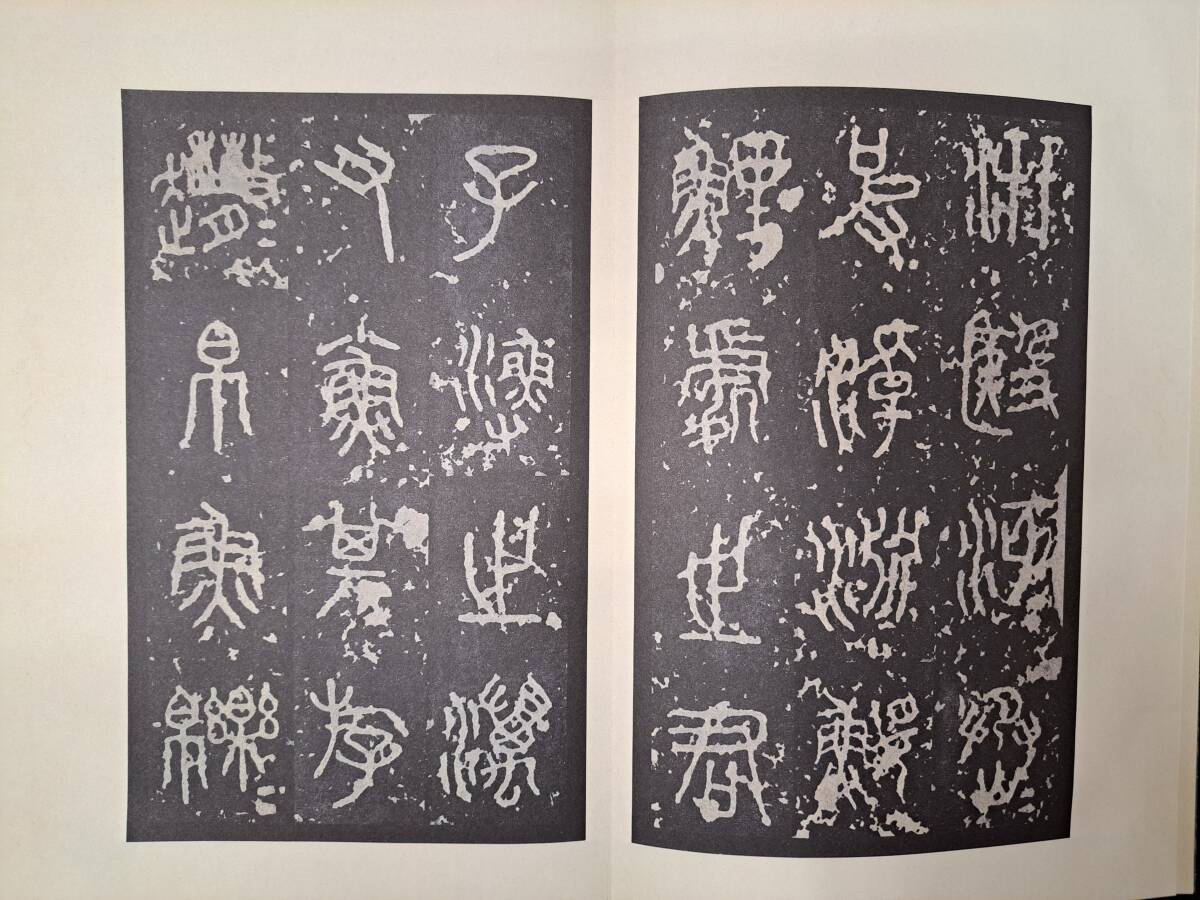 汧殹沔丞
皮淖淵鰋
鯉處之君
子漁之澫
又小魚其斿
帛魚皪